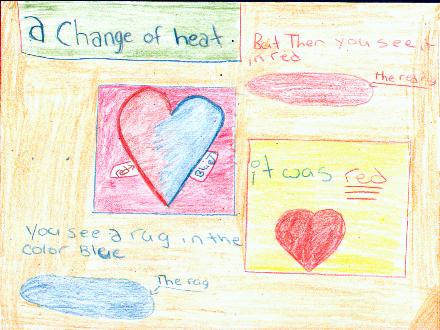 a Change of heat
red
Blue
You see a rug in the
color Blue
The rug
But Then you see it
in red
the red rug
it was red